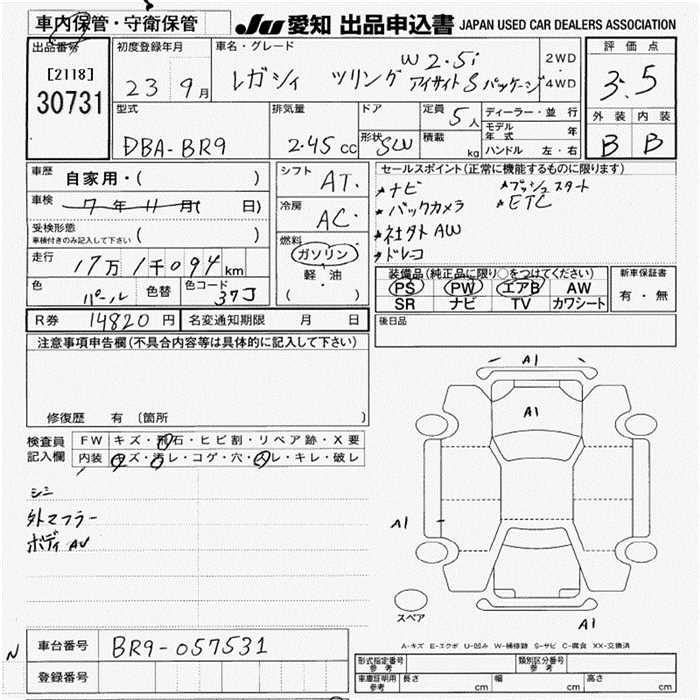 車内保管・守衛保管
JU 愛知 出品申込書 JAPAN USED CAR DEALERS ASSOCIATION
出品番号
[2118]
30731
初度登録年月
23 9月
車名・グレード
W 2.5i
レガシィ ツリング アイサイトSパッケージ
2WD
4WD
評価点
3.5
外装 内装
B B
型式
DBA-BR9
排気量
2.45 cc
ドア
形状 SW
定員 5人
積載 kg
ディーラー・並行
モデル年式 年
ハンドル 左・右
車歴 自家用・( )
車検 7年11月( 日)
受検形態
車検付きのみ記入して下さい ( )
走行 17万1千094km
色 パール 色替 色コード 37J
シフト AT
冷房 AC
燃料
ガソリン
軽・油
( )
セールスポイント(正常に機能するものに限ります)
*ナビ *プッシュスタート
*バックカメラ *ETC
*社外AW
*ドレコ
装備品(純正品に限り○をつけてください)
PS PW エアB AW
SR ナビ TV カワシート
新車保証書
有・無
R券 14820円 名変通知期限 月 日
後日品
注意事項申告欄(不具合内容等は具体的に記入して下さい)
修復歴 有 〔箇所 〕
検査員記入欄
FW キズ・飛石・ヒビ割・リペア跡・X要
内装 キズ・汚レ・コゲ・穴・スレ・キレ・破レ
シミ
外マフラー
ボディAU
A1
A1
A1
A1
スペア
A-キズ E-エクボ U-凹み W-補修跡 S-サビ C-腐食 XX-交換済
N
車台番号 BR9-057531
登録番号
形式指定番号 参考
類別区分番号 参考
車庫証明用 参考 長さ cm 幅 cm 高さ cm